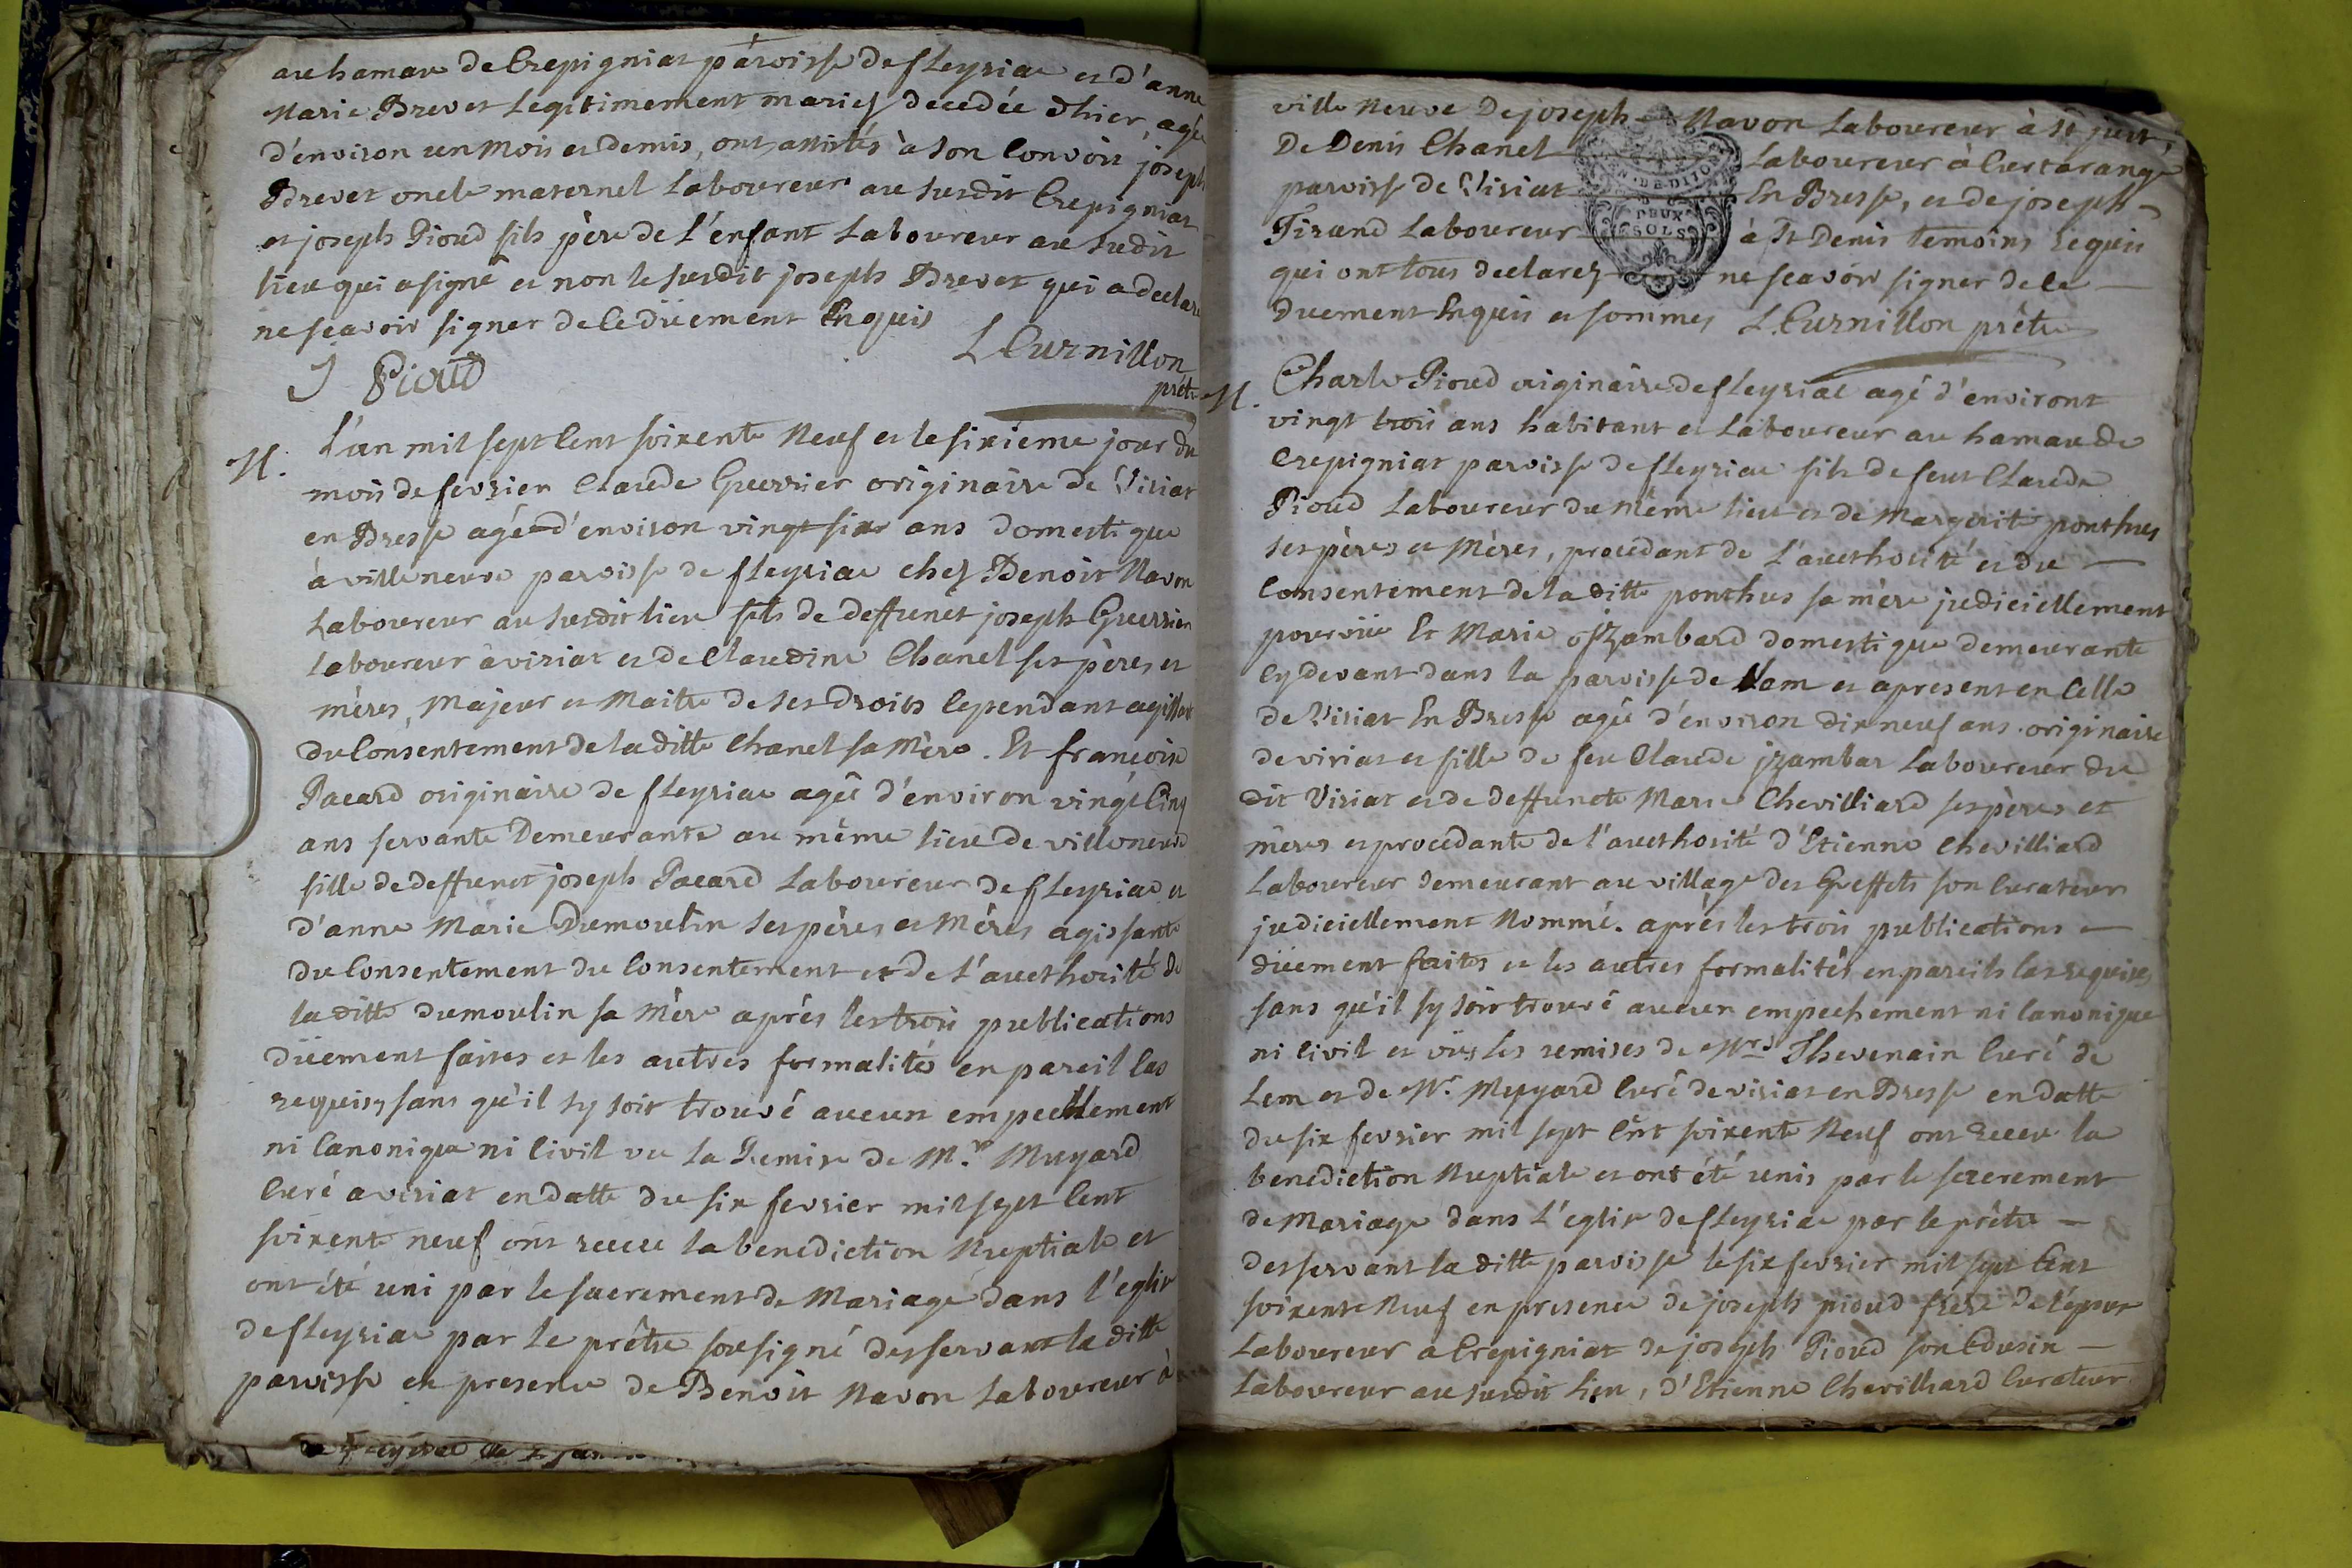 au hamau de Crepigniat parroisse de fleyriac et d'anne
Marie Brevet Legitimement mariés decedée d'hier, agée
d'environ un Mois et demis, ont assistés à son Convois joseph
Brevet oncle maternel Laboureur au susdit Crepigniat
et joseph Pioud fils père de l'enfant Laboureur au sudit
lieu qui a signé et non le susdit joseph Brevet qui a declaré
ne scavoir signer de ce düement Enquis
L Curnillon
J Pioud
prêtre
M.
L'an mil sept Cent soixente Neuf et le sixieme jour du
mois de fevrier Claude Guerrier originaire de Viriat
en Bresse agé d'environ vingt six ans domestique
à villeneuve paroisse de fleyriac chez Benoit Navon
Laboureur au susdit lieu fils de deffunct joseph Guerrier
Laboureur à viriat et de Claudine Chanel ses pères et
mères, Majeur et Maitre de ses droits Cependant agissant
du Consentement de la ditte Chanel sa Mère. Et françoise
Pacard originaire de fleyriac agée d'environ vingt Cinq
ans servante Demeurante au même lieu de villeneuve
fille de deffunct joseph Pacard Laboureur de fleyriac et
d'anne Marie Dumoulin ses pères et Mères agissante
du Consentement du Consentement et de l'aucthorité de
la ditte dumoulin sa Mère aprés les trois publications
düement faites et les autres formalités en pareil Cas
requises sans qu'il sy soit trouvé aucun empechement
ni Canonique ni Civil vu la Remise de M.r Muyard
Curé a viriat en datte du six fevrier mil sept Cent
soixente neuf ont receu la benediction Nuptiale et
ont été uni par le sacrement de Mariage dans l'eglise
de fleyriac par le prêtre sousigné desservant la ditte
paroisse en presence de Benoit Navon Laboureur à
ville Neuve De joseph Navon Laboureur à St just,
De Denis Chanel Laboureur à Curtarange
paroisse de Viriat En Bresse, et de joseph
Tirand Laboureur à St Denis temoins requis
qui ont tous declarez ne scavoir signer de ce
duement Enquis et sommes L. Curnillon prêtre
DEUX
SOLS
M.
Charle Pioud originaire de fleyriac agé d'environt
vingt trois ans habitant et Laboureur au hamau de
Crepigniat paroisse de fleyriac fils de feut Claude
Pioud Laboureur du même lieu et de Margerite ponthus
ses pères et Mères, procedant de l'aucthorité et du
Consentement de la ditte ponthus sa mère judiciellement
pourvüe Et Marie jzambard domestique demeurante
Cy devant dans la paroisse de et apresent en Celle
de Viriat En Bresse agée d'environ dixneuf ans originaire
de viriat et fille de feu Claude jzambar Laboureur du
dit Viriat et de deffuncte Marie Chevilliard ses pères et
mères et procedante de l'aucthorité d'Etienne Chevilliard
Laboureur demeurant au village des Greffets son Curateur
judiciellement Nommé. après les trois publications
düement faites et les autres formalités en pareils Cas requises
sans qu'il sy soit trouvé aucun empechement ni Canonique
ni Civil et vus les remises de Mrs Thevenain Curé de
Lem et de Mr. Muyard Curé de viriat en Bresse en datte
du six fevrier mil sept Cent soixente Neuf ont receu la
benediction Nuptiale et ont été unis par le sacrement
de Mariage dans l'eglise de fleyriac par le prêtre
desservant la ditte paroisse le six fevrier mil sept Cent
soixente Neuf en presence de joseph pioud frere de lépoux
Laboureur a Crepigniat de joseph Pioud son Cousin
Laboureur au susdit lieu, d'Etienne Chevilliard Curateur